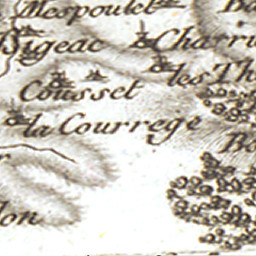 Mespoulet
Bigeac
Charri
les Th
Cousset
la Courrege